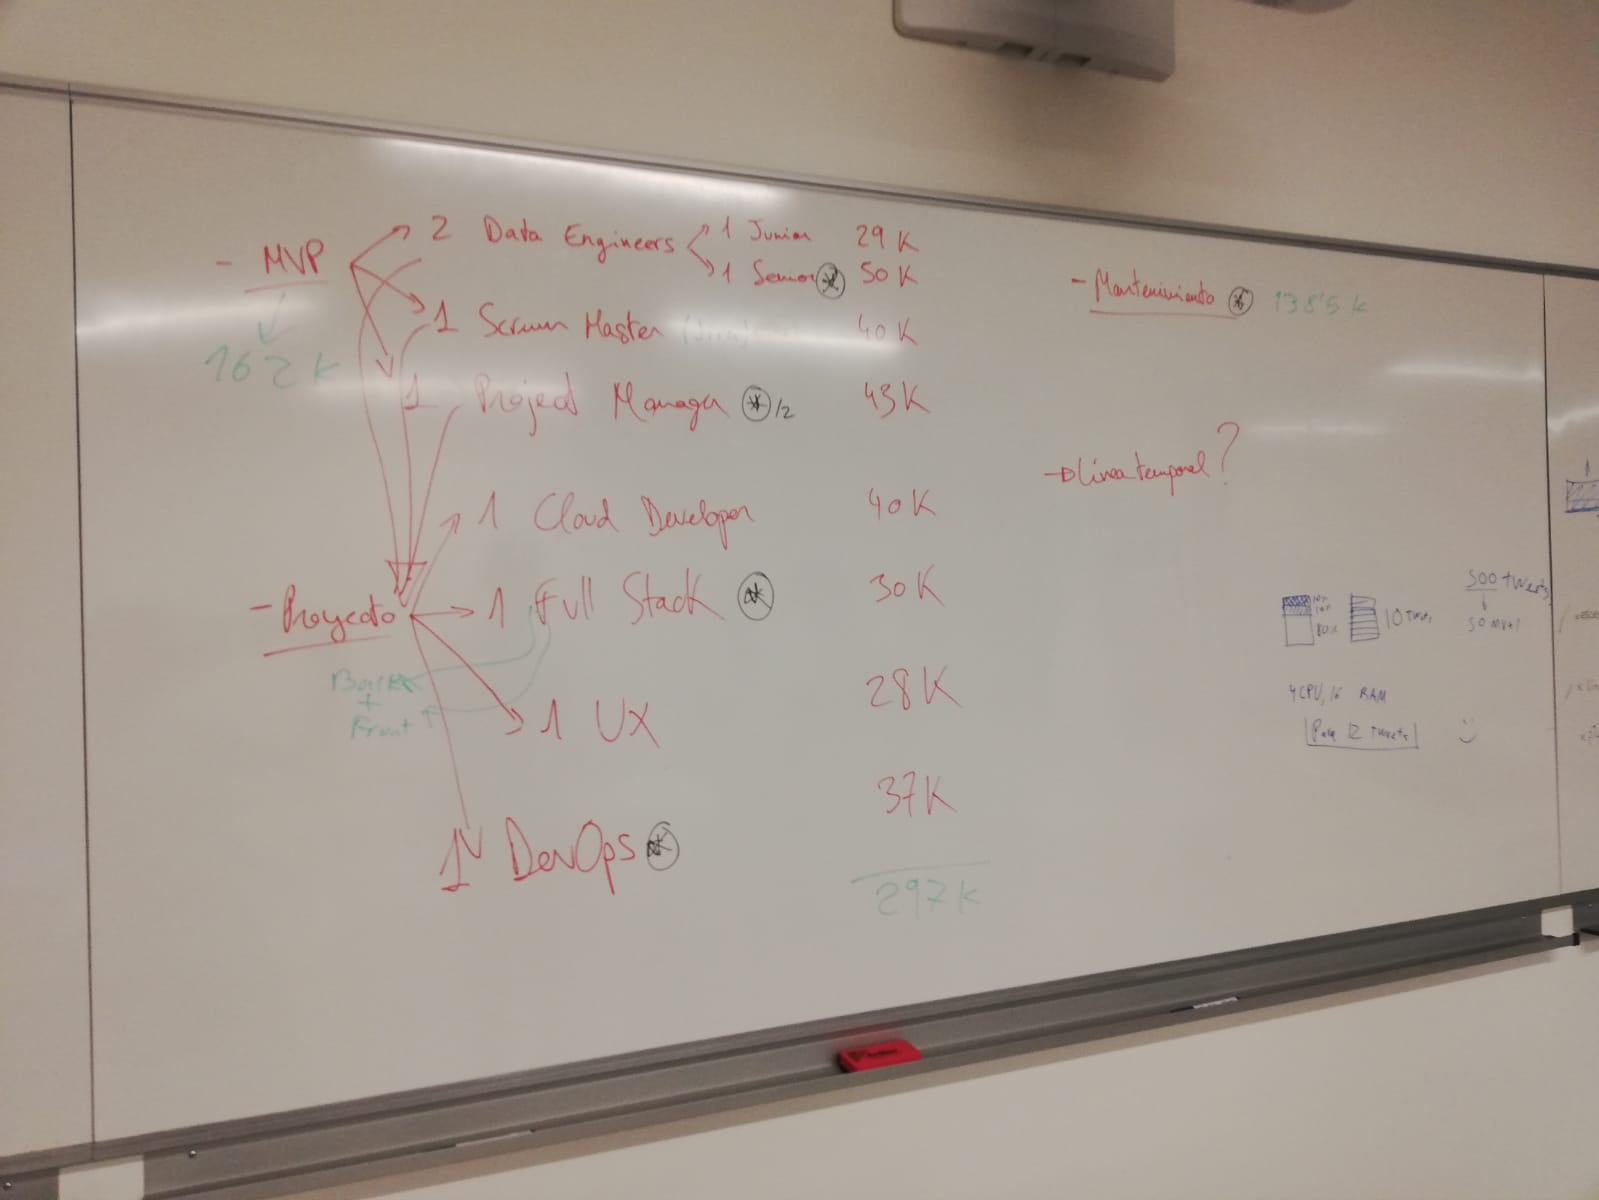 - MVP
162 K
2 Data Engineers
1 Junior 29 K
1 Senior * 50 K
1 Scrum Master 40 K
1 Project Manager * /2 43 K
1 Cloud Developer 40 K
- Proyecto
1 Full Stack * 30 K
Back
+
Front
1 UX 28 K
1 DevOps * 37 K
297 K
- Mantenimiento * 138'5 K
→ linea temporal?
500 tweets
10
80%
4 CPU, 16 RAM
12 tweets